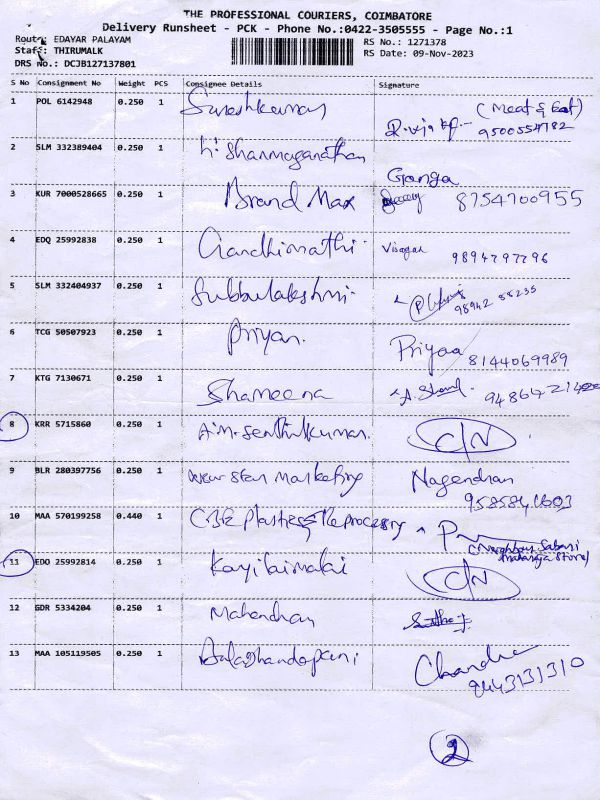 THE PROFESSIONAL COURIERS, COIMBATORE
Delivery Runsheet - PCK - Phone No.:0422-3505555 - Page No.:1
Route: EDAYAR PALAYAM
Staff: THIRUMALK
DRS No.: DCJB127137801
RS No.: 1271378
RS Date: 09-Nov-2023
S No Consignment No Weight PCS Consignee Details Signature
1 POL 6142948 0.250 1 Sureshkumar (Meat & Eat)
9500554782
2 SLM 332389404 0.250 1 Shanmuganathan
Ganga
3 KUR 7000528665 0.250 1 Brand Max 8754700955
4 EDQ 25992838 0.250 1 Gandhimathi Visagan
9894797296
5 SLM 332404937 0.250 1 Subbulakshmi
98942 88235
6 TCG 50507923 0.250 1 Priyan. Priyaa
8144069989
7 KTG 7130671 0.250 1 Shameena
8 KRR 5715860 0.250 1 A.M. Senthilkumar. C/N
9 BLR 280397756 0.250 1 New Star Marketing Nagendran
10 MAA 570199258 0.440 1 CBE Plastics Reprocessry
11 EDO 25992814 0.250 1 Kayilaimalai C/N
12 GDR 5334204 0.250 1 Mahendran
13 MAA 105119505 0.250 1 Chandru
9443131310
2